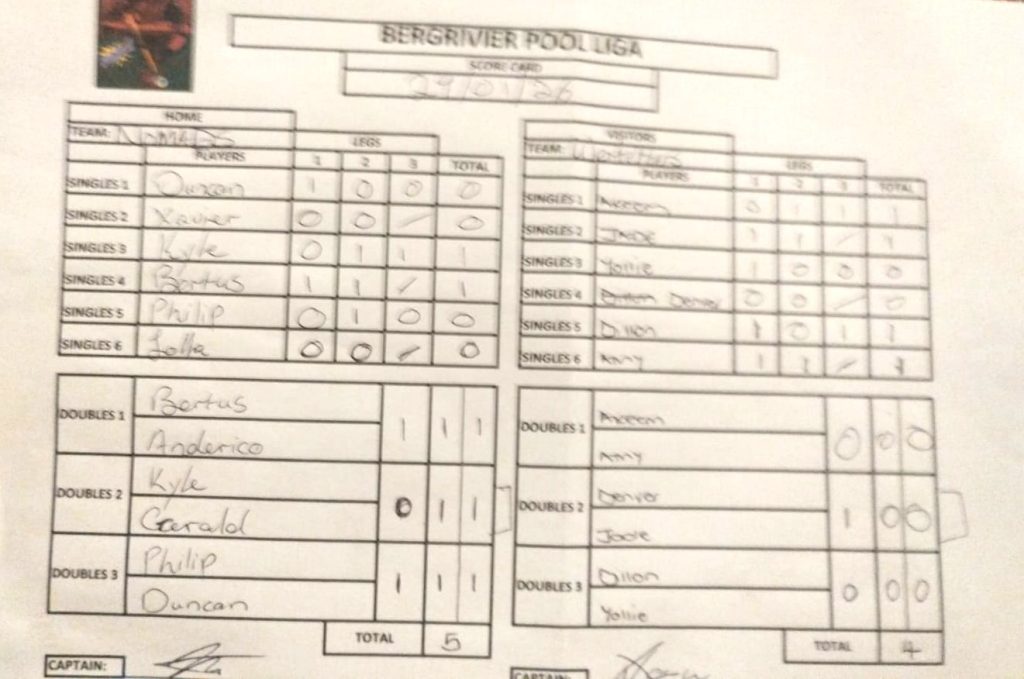 BERGRIVIER POOL LIGA
SCORE CARD
29/01/26
HOME
TEAM: Nomads
LEGS
PLAYERS 1 2 3 TOTAL
SINGLES 1 Duncan 1 0 0 0
SINGLES 2 Xavier 0 0 / 0
SINGLES 3 Kyle 0 1 1 1
SINGLES 4 Bertus 1 1 / 1
SINGLES 5 Philip 0 1 0 0
SINGLES 6 Lolla 0 0 / 0
DOUBLES 1 Bertus
Anderico 1 1 1
DOUBLES 2 Kyle
Gerald 0 1 1
DOUBLES 3 Philip
Duncan 1 1 1
TOTAL 5
CAPTAIN:
VISITORS
TEAM:
LEGS
PLAYERS 1 2 3 TOTAL
SINGLES 1 Aceem 0 1 1 1
SINGLES 2 Jade 1 1 / 1
SINGLES 3 Yollie 1 0 0 0
SINGLES 4 Denver 0 0 / 0
SINGLES 5 Dillon 1 0 1 1
SINGLES 6 Amy 1 1 / 1
DOUBLES 1
Amy 0 0 0
DOUBLES 2 Denver
Jade 1 0 0
DOUBLES 3 Dillon
Yollie 0 0 0
TOTAL 4
CAPTAIN: